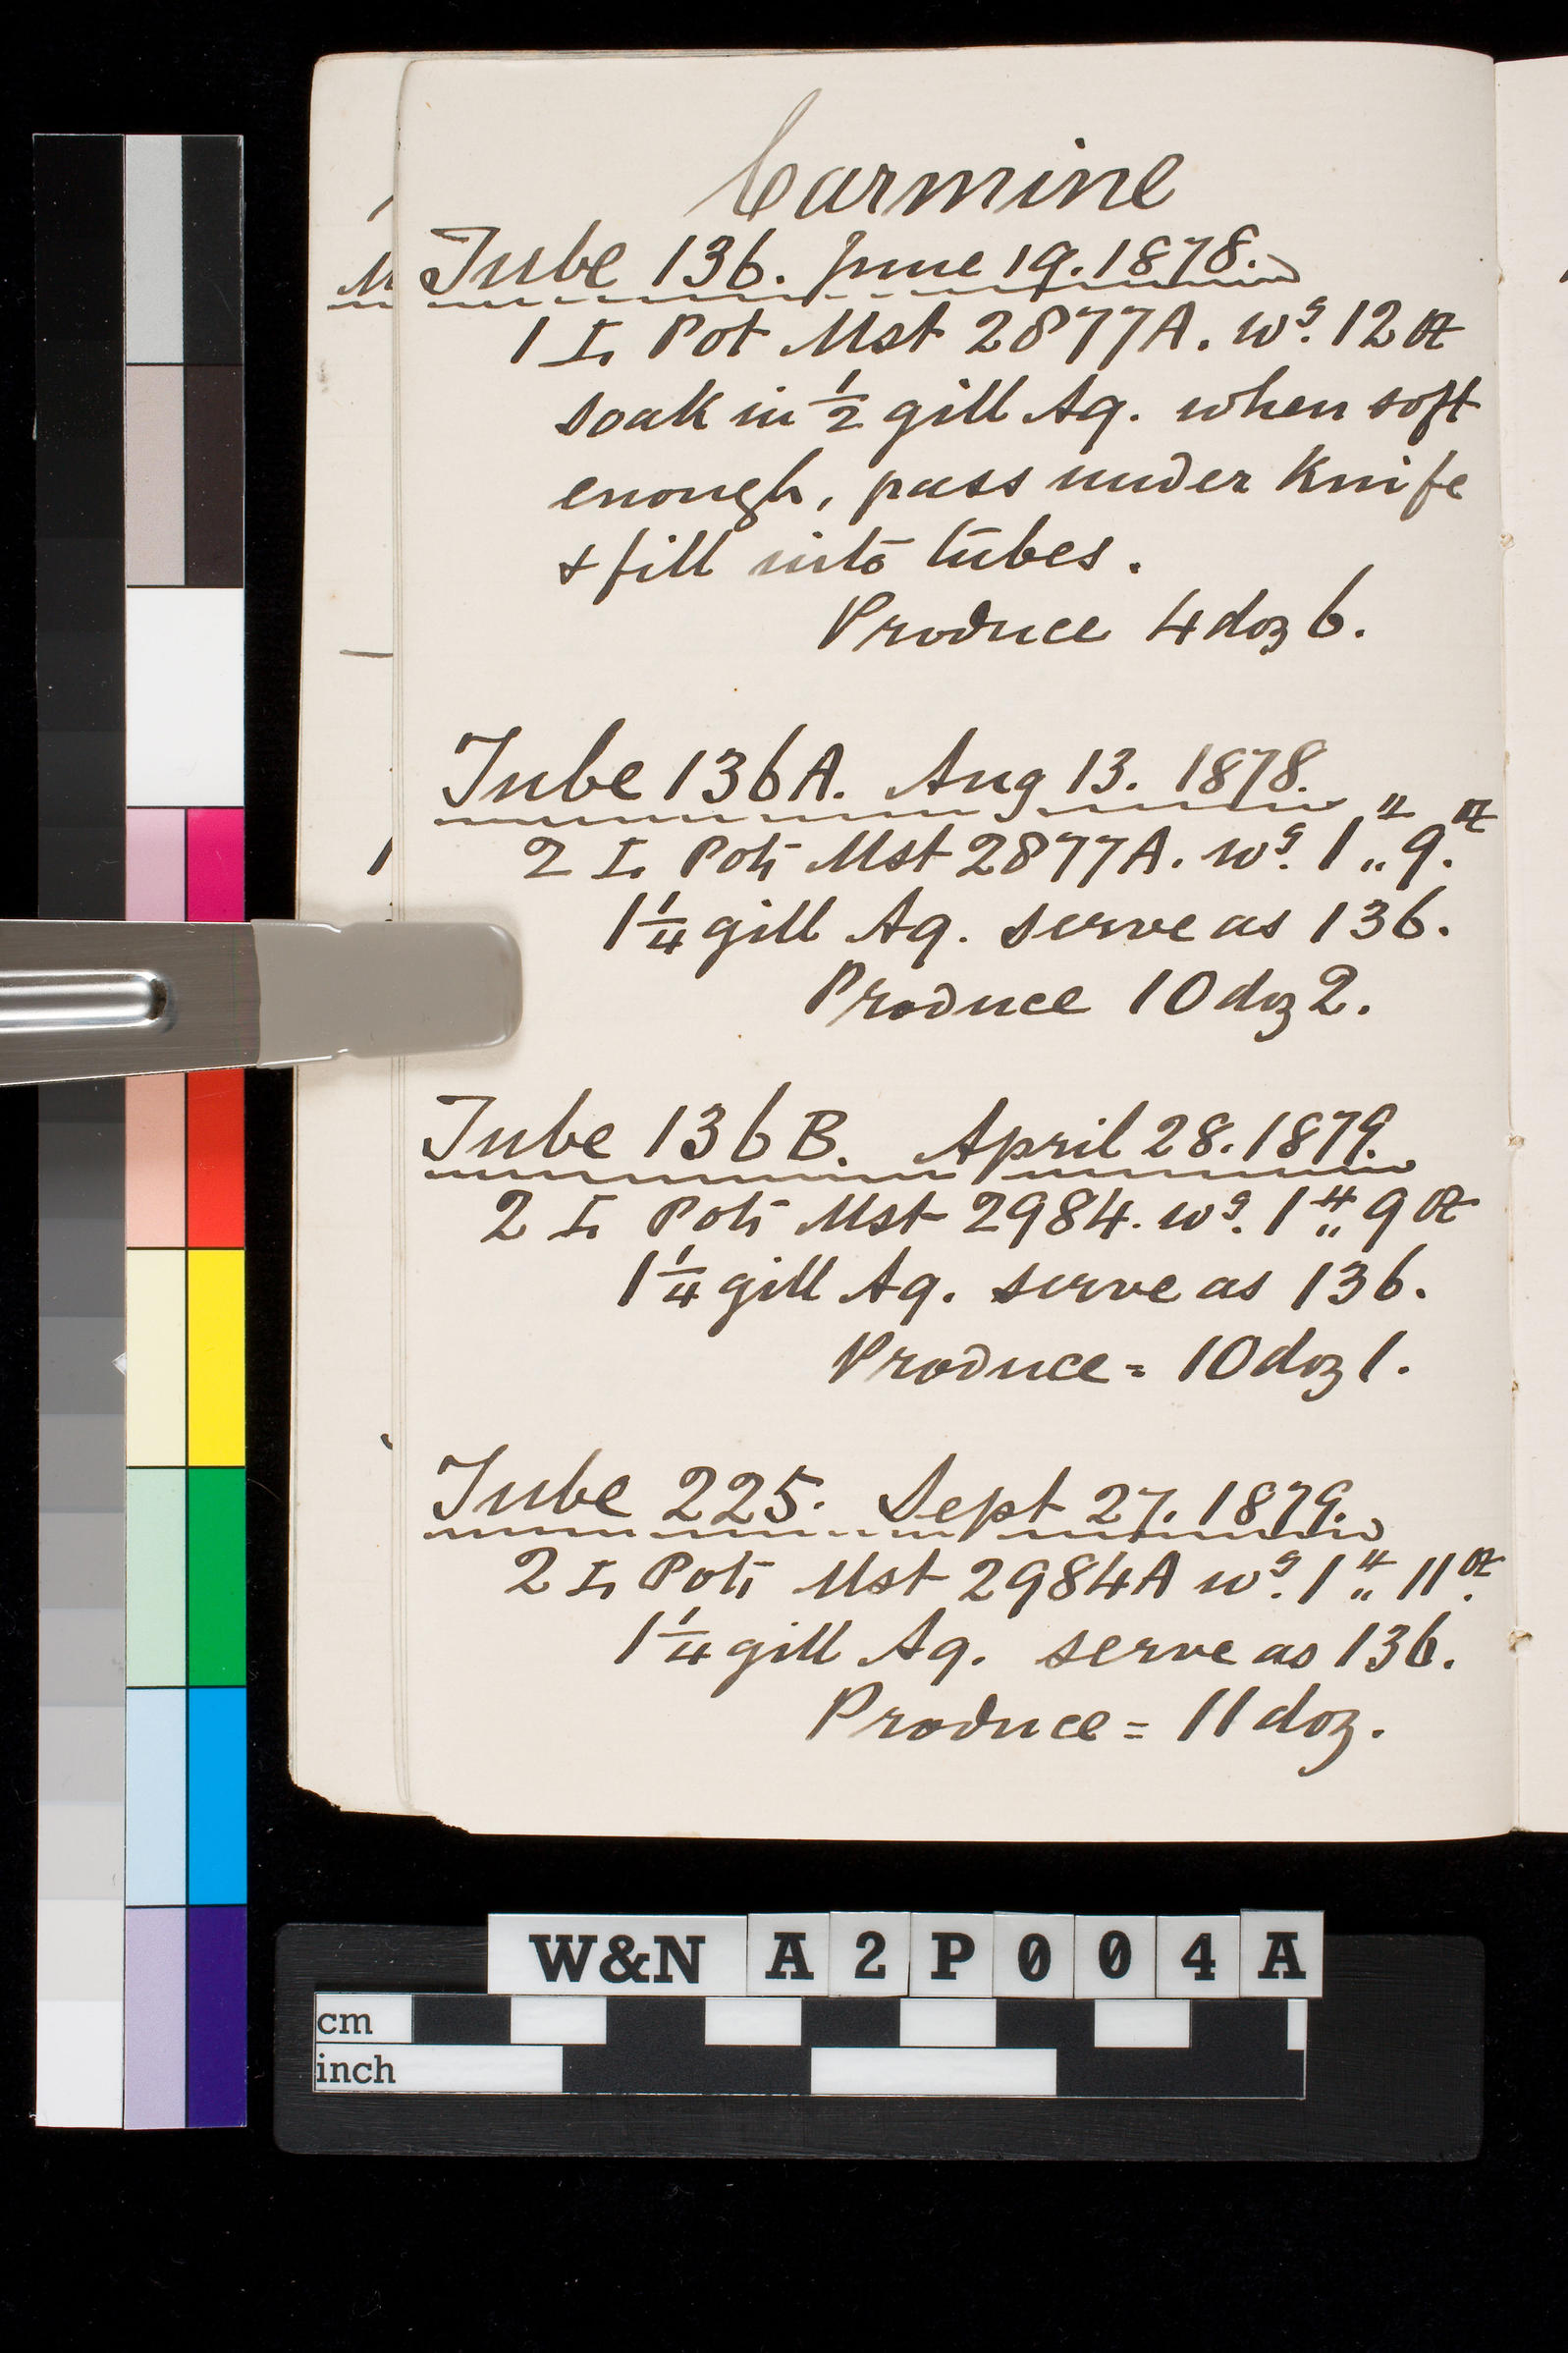 Carmine
Tube 136. June 19. 1878.
1 I. Pot Mst 2877A. wg. 12 oz
soak in ½ gill Aq. when soft
enough, pass under knife
+ fill into tubes.
Produce 4 doz 6.
Tube 136A. Aug 13. 1878.
2 I. Pots Mst 2877A. wg. 1 „ 9. oz
1¼ gill Aq. serve as 136.
Produce 10 doz 2.
Tube 136B. April 28. 1879.
2 I. Pots Mst 2984. wg. 1 „ 9 oz
1¼ gill Aq. serve as 136.
Produce = 10 doz 1.
Tube 225. Sept 27. 1879.
2 I. Pots Mst 2984A wg. 1 „ 11 oz.
1¼ gill Aq. serve as 136.
Produce = 11 doz.
W&N A2P004A
cm
inch